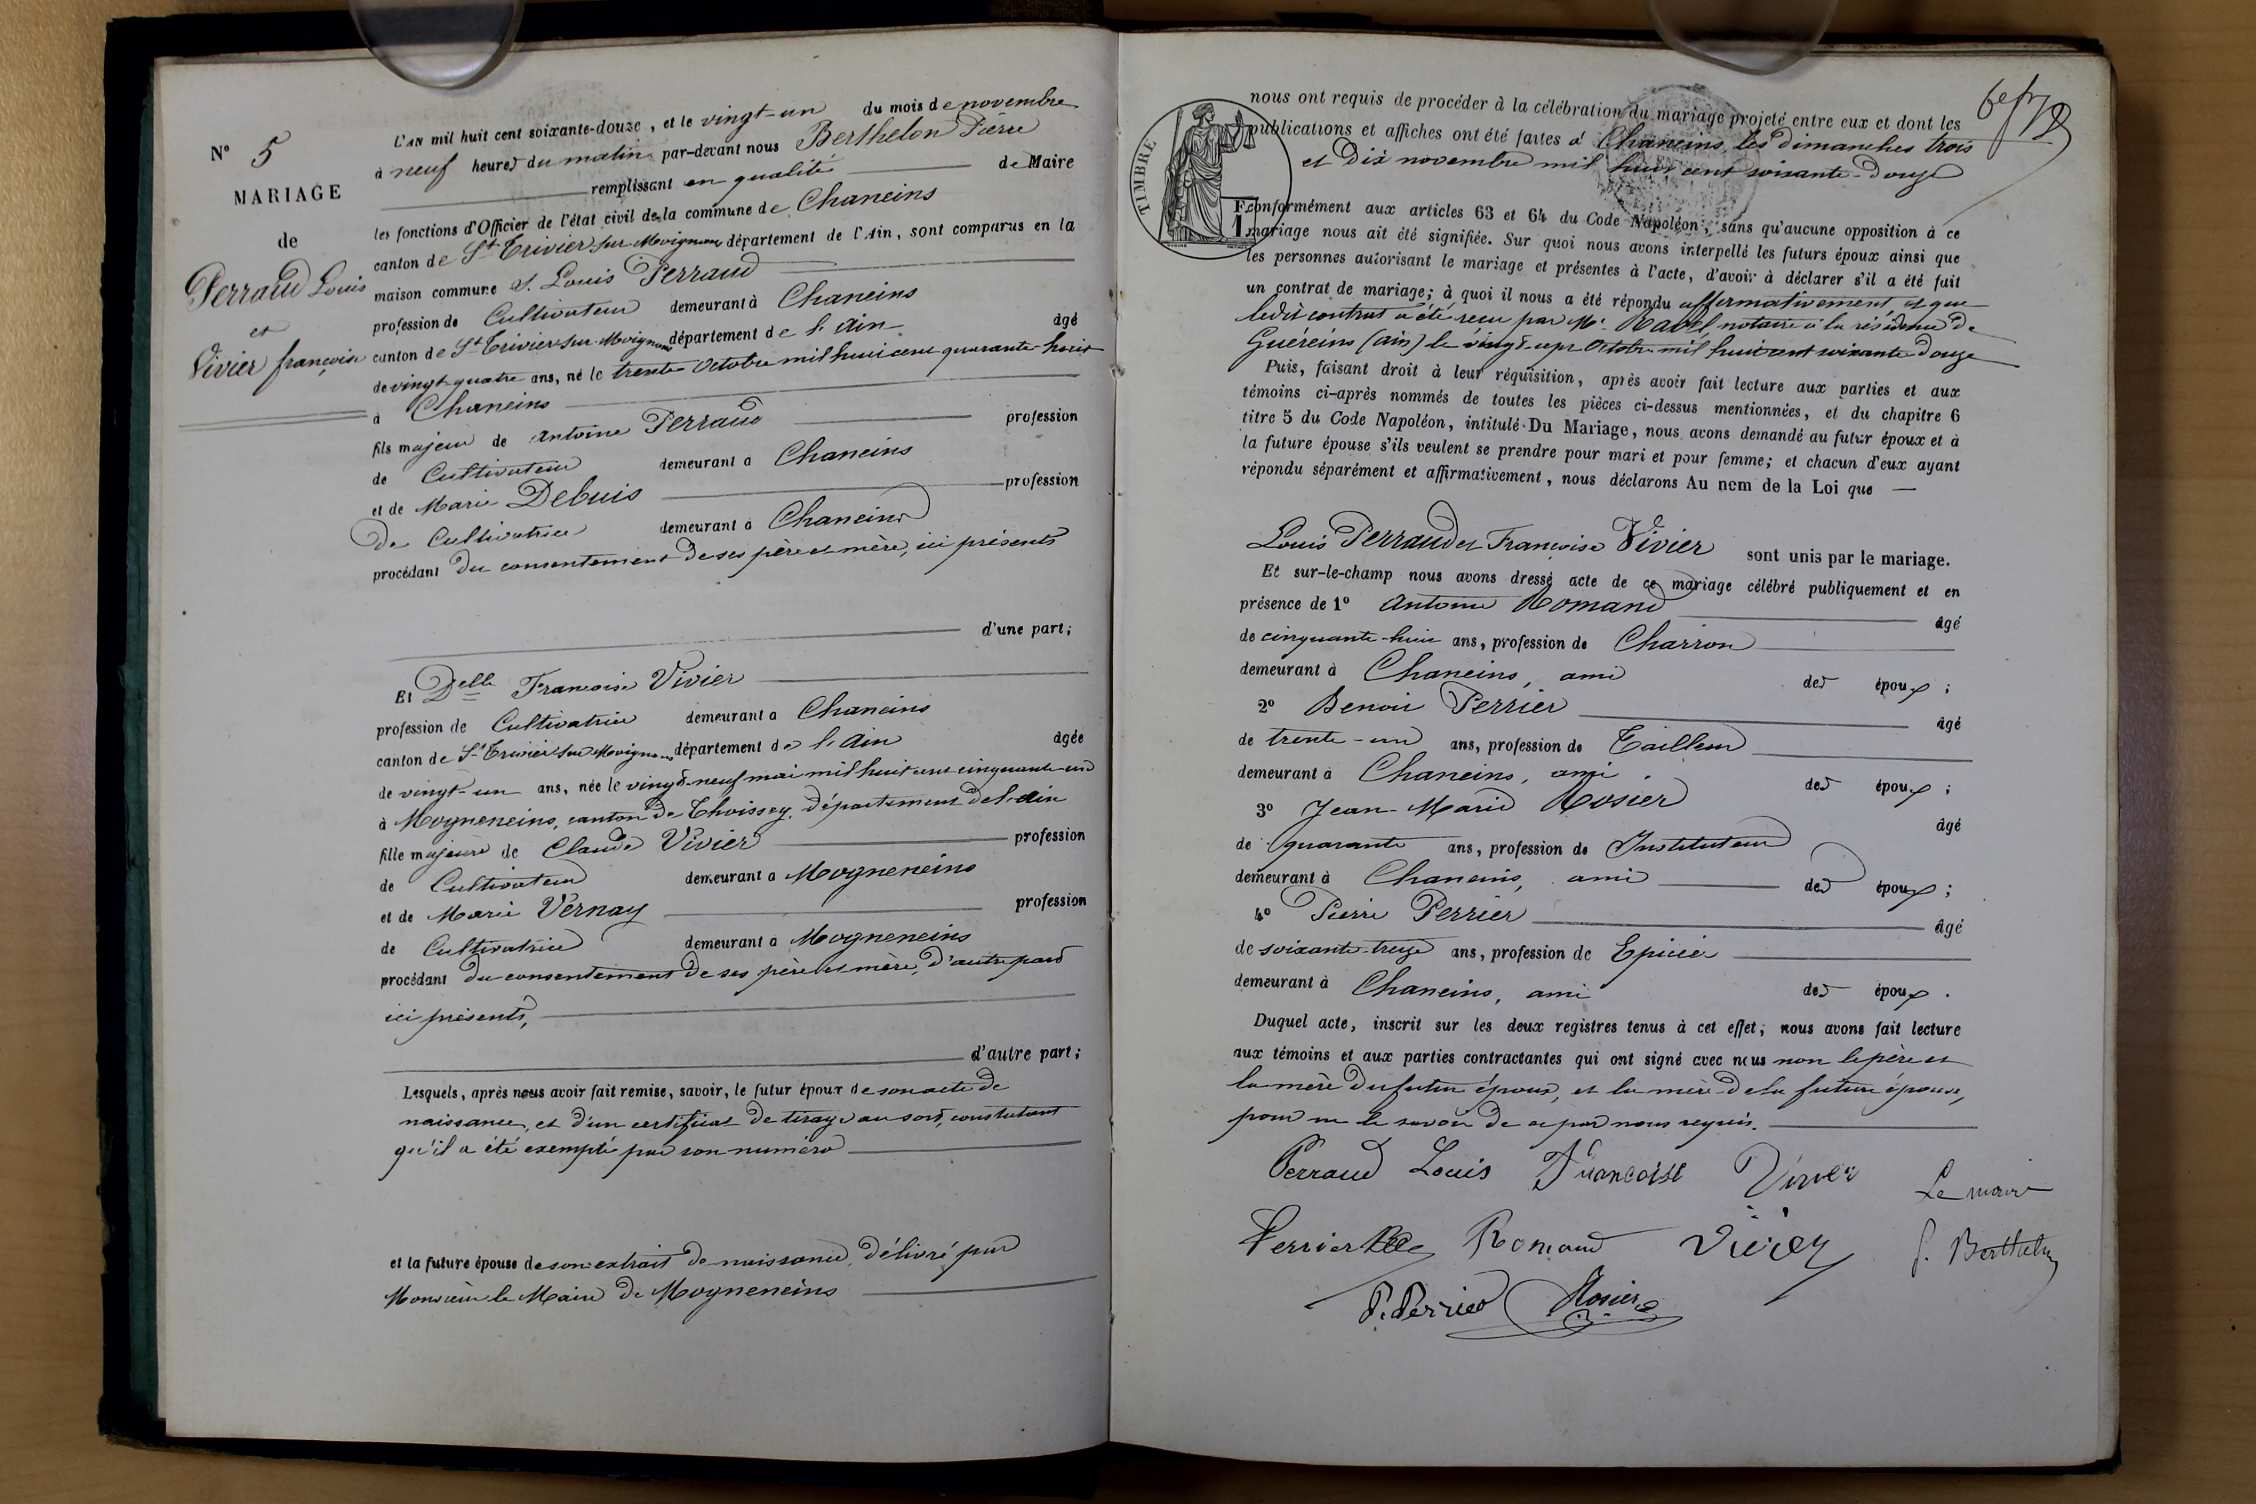 N° 5
MARIAGE
de
Perraud Louis
et
Vivier françoise
L'AN mil huit cent soixante-douze, et le vingt-un du mois de novembre
à neuf heures du matin par-devant nous Berthelon Pierre
remplissant en qualité de Maire
les fonctions d'Officier de l'état civil de la commune de Chaneins
canton de St Trivier sur Moignans département de l'Ain, sont comparus en la
maison commune S. Louis Perraud
profession de Cultivateur demeurant à Chaneins
canton de St Trivier sur Moignans département de l'Ain âgé
de vingt quatre ans, né le trente Octobre mil huit cent quarante huit
à Chaneins
fils majeur de Antoine Perraud profession
de Cultivateur demeurant à Chaneins
et de Marie Debuis profession
De Cultivatrice demeurant à Chaneins
procédant du consentement de ses père et mère, ici présents
d'une part;
Et Delle Françoise Vivier
profession de Cultivatrice demeurant à Chaneins
canton de St Trivier sur Moignans département de l'Ain âgée
de vingt-un ans, née le vingt-neuf mai mil huit cent cinquante-un
à Mogneneins, canton de Thoissey, département de l'ain
fille majeure de Claude Vivier profession
de Cultivateur demeurant à Mogneneins
et de Marie Vernay profession
de Cultivatrice demeurant à Mogneneins
procédant du consentement de ses père et mère, d'autre part
ici présents,
d'autre part;
Lesquels, après nous avoir fait remise, savoir, le futur époux de son acte de
naissance, et d'un certificat de tirage au sort, constatant
qu'il a été exempté par son numéro
et la future épouse de son extrait de naissance, délivré par
Monsieur le Maire de Mogneneins
TIMBRE
nous ont requis de procéder à la célébration du mariage projeté entre eux et dont les
publications et affiches ont été faites à Chaneins, les dimanches trois
et dix novembre mil huit cent soixante-douze
conformément aux articles 63 et 64 du Code Napoléon; sans qu'aucune opposition à ce
mariage nous ait été signifiée. Sur quoi nous avons interpellé les futurs époux ainsi que
les personnes autorisant le mariage et présentes à l'acte, d'avoir à déclarer s'il a été fait
un contrat de mariage; à quoi il nous a été répondu affirmativement et que
ledit contrat a été reçu par Me notaire à la résidence de
Guéreins (ain) le vingt-sept Octobre mil huit cent soixante douze
Puis, faisant droit à leur réquisition, après avoir fait lecture aux parties et aux
témoins ci-après nommés de toutes les pièces ci-dessus mentionnées, et du chapitre 6
titre 5 du Code Napoléon, intitulé Du Mariage, nous avons demandé au futur époux et à
la future épouse s'ils veulent se prendre pour mari et pour femme; et chacun d'eux ayant
répondu séparément et affirmativement, nous déclarons Au nom de la Loi que
Louis Perraud et Françoise Vivier sont unis par le mariage.
Et sur-le-champ nous avons dressé acte de ce mariage célébré publiquement et en
présence de 1° Antoine Romand âgé
de cinquante-huit ans, profession de Charron
demeurant à Chaneins, ami des époux;
2° Benoit Perrier âgé
de trente-un ans, profession de Tailleur
demeurant à Chaneins, ami des époux;
3° Jean Marie Rosier âgé
de quarante ans, profession de Instituteur
demeurant à Chaneins, ami des époux;
4° Pierre Perrier âgé
de soixante-treize ans, profession de Epicier
demeurant à Chaneins, ami des époux.
Duquel acte, inscrit sur les deux registres tenus à cet effet, nous avons fait lecture
aux témoins et aux parties contractantes qui ont signé avec nous non le père et
la mère du futur époux, et la mère de la future épouse,
pour ne le savoir de ce par nous requis.
Perraud Louis Françoise Vivier Le maire
Perrier Romand Vivier P. Berthelon
P. Perrier Rosier